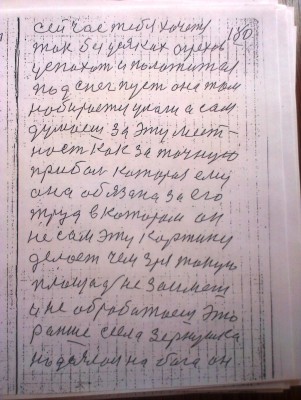 180
сейчас тебя хочет
так без всяких грехов
успахот и положится
под снег пуст она там
набирается умам а сам
думаем за эту мест-
ност как за точную
прибал которая ему
она обязана за его
труд в котором он
не сам эту картину
делает чем зря такую
площадь не займет
и не обробатаем это
ранше села Зернушка
надеялся на бога он